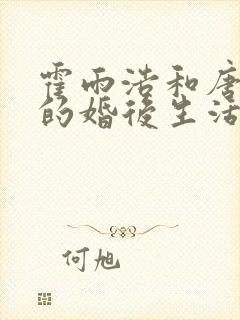 霍雨浩和唐
的婚後生活
何旭